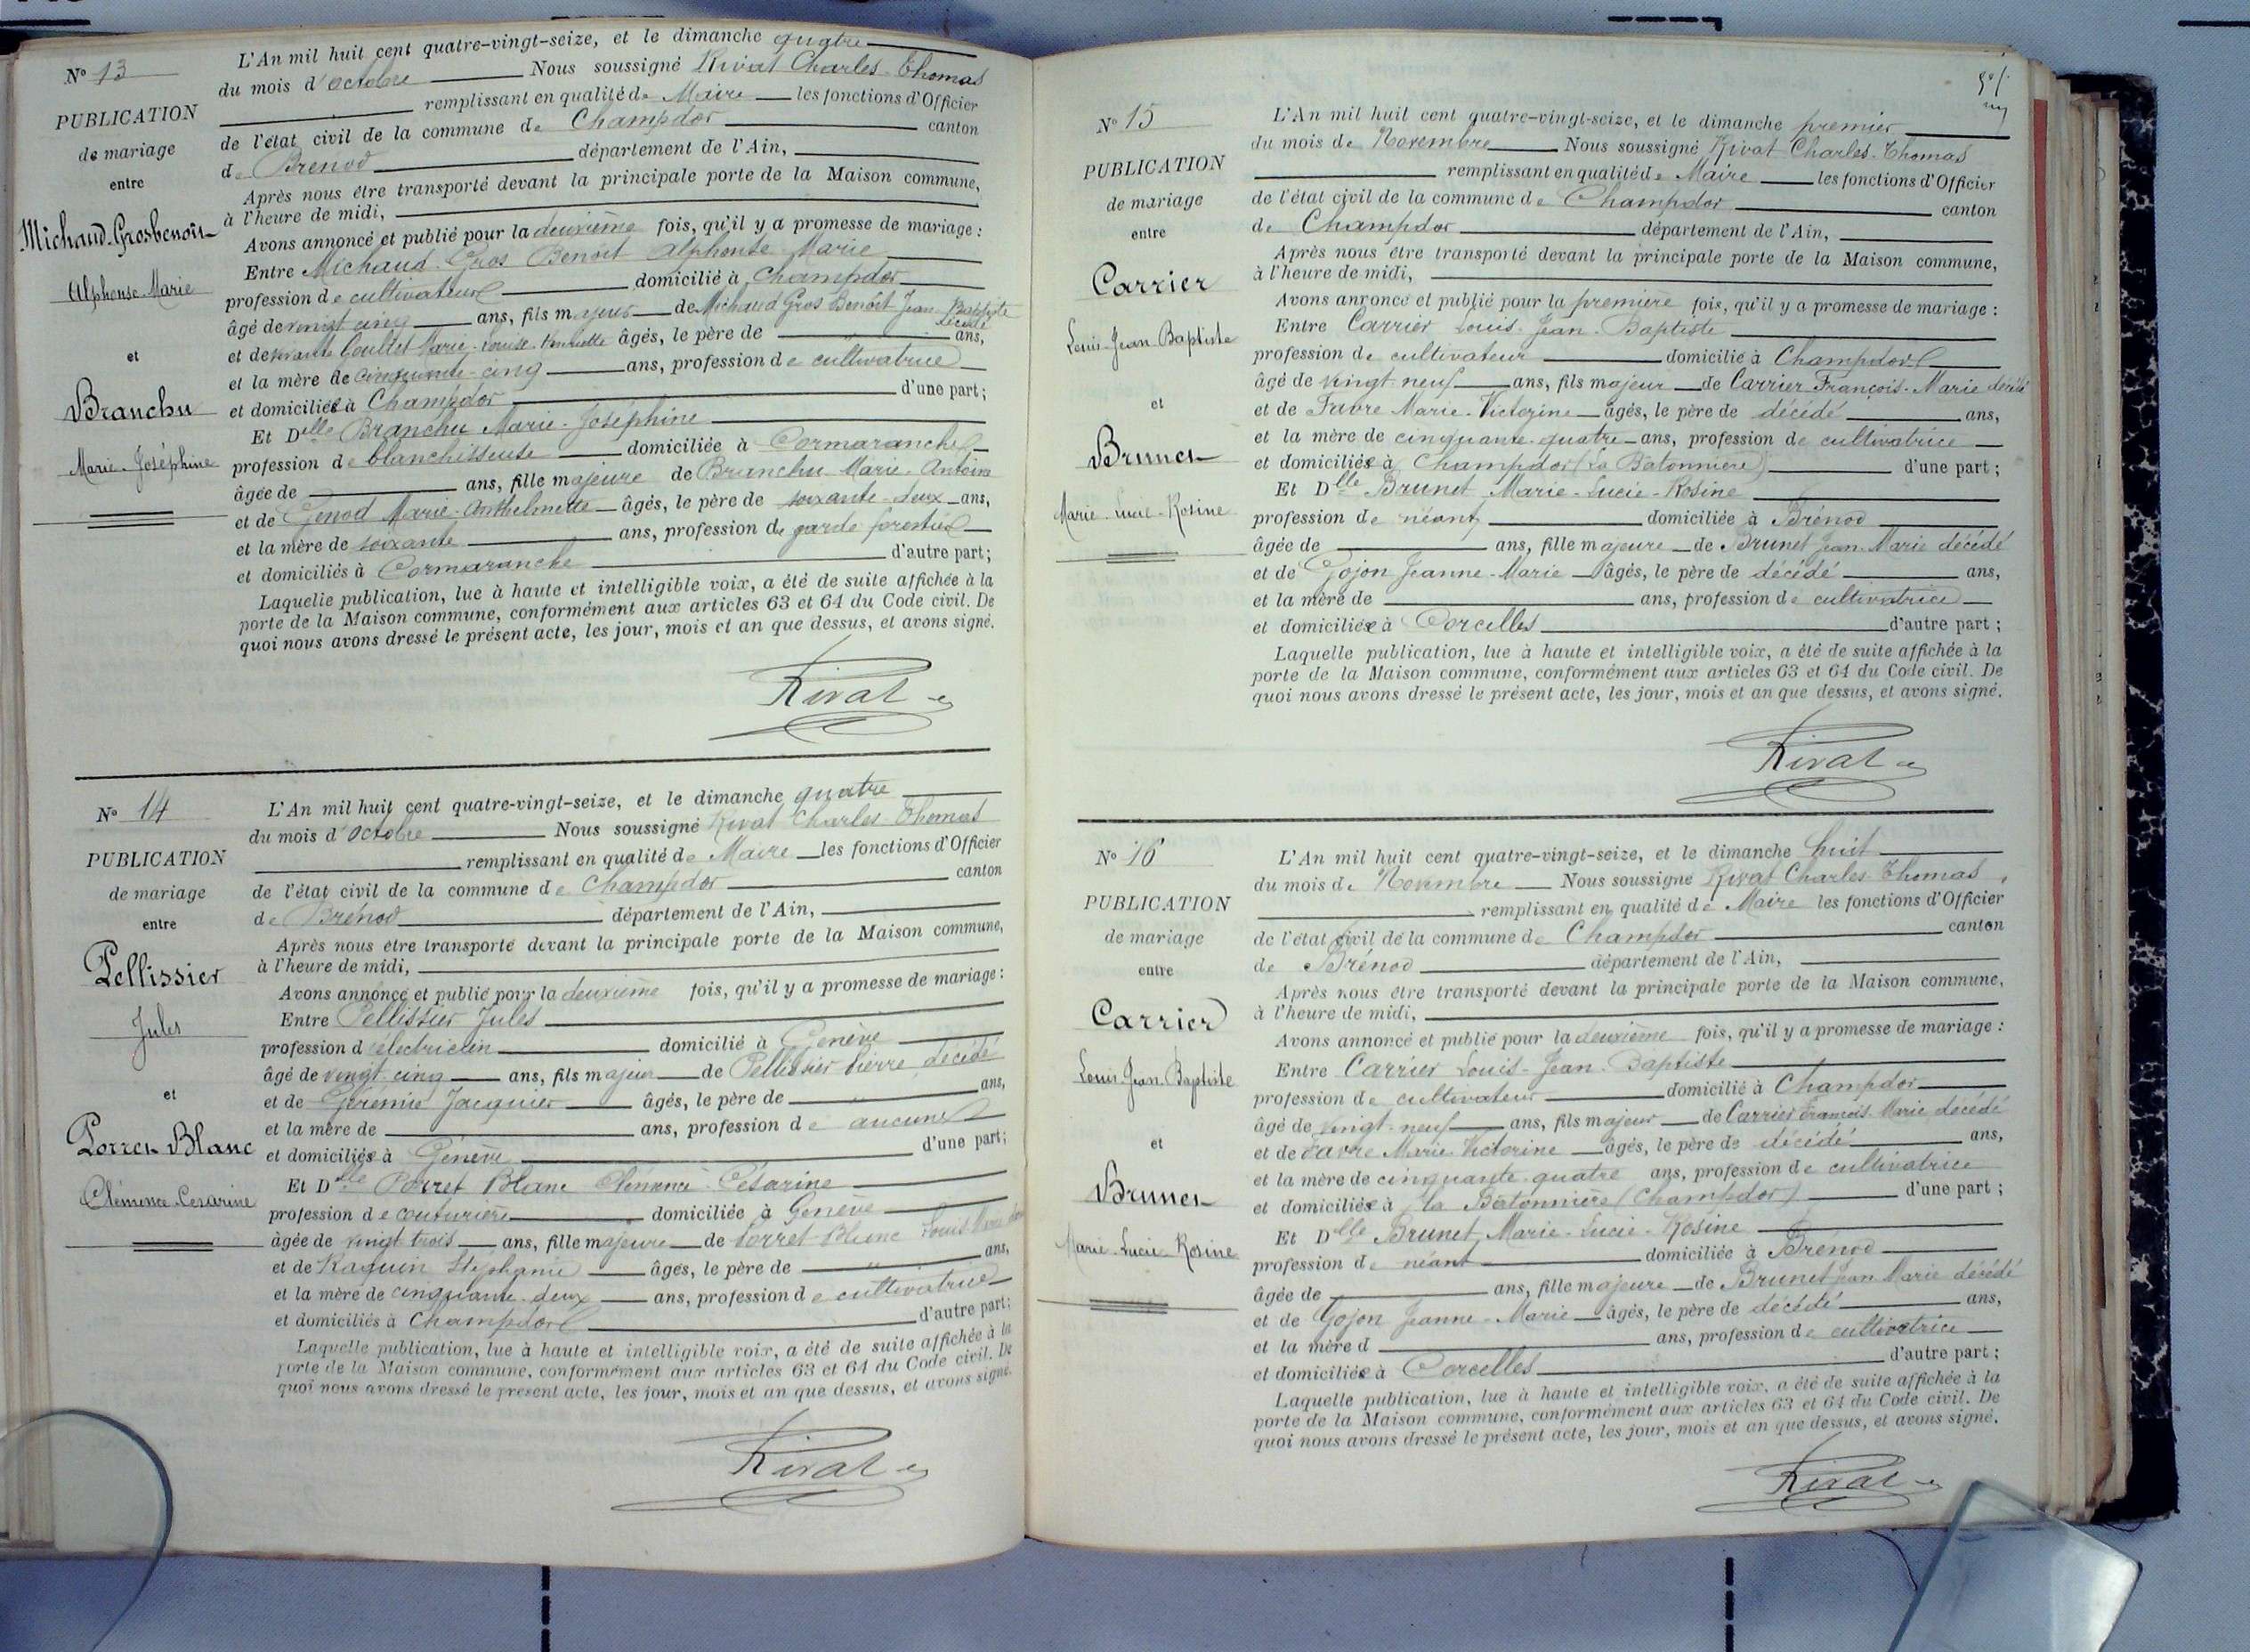 N° 13
PUBLICATION
de mariage
entre
Michaud-Grosbenoit
Alphonse-Marie
et
Branchu
Marie-Joséphine
L'An mil huit cent quatre-vingt-seize, et le dimanche quatre
du mois d'octobre Nous soussigné Rivat Charles-Thomas
remplissant en qualité de Maire les fonctions d'Officier
de l'état civil de la commune de Champdor canton
de Brenod département de l'Ain,
Après nous être transporté devant la principale porte de la Maison commune,
à l'heure de midi,
Avons annoncé et publié pour la deuxième fois, qu'il y a promesse de mariage :
Entre Michaud-Gros Benoit Alphonse Marie
profession de cultivateur domicilié à Champdor
âgé de vingt cinq ans, fils majeur de Michaud Gros Benoit Jean Baptiste
décédé
et de Goullet Marie-Louise âgés, le père de ans,
et la mère de cinquante-cinq ans, profession de cultivatrice
et domiciliée à Champdor d'une part ;
Et Delle Branchu Marie-Joséphine
profession de blanchisseuse domiciliée à Cormaranche
âgée de ans, fille majeure de Branchu Marie-Antoine
et de Genod Marie-Anthelmette âgés, le père de soixante-deux ans,
et la mère de soixante ans, profession de garde forestier
et domiciliés à Cormaranche d'autre part ;
Laquelle publication, lue à haute et intelligible voix, a été de suite affichée à la
porte de la Maison commune, conformément aux articles 63 et 64 du Code civil. De
quoi nous avons dressé le présent acte, les jour, mois et an que dessus, et avons signé.
Rivat
N° 14
PUBLICATION
de mariage
entre
Pellissier
Jules
et
Porret-Blanc
Clémence-Césarine
L'An mil huit cent quatre-vingt-seize, et le dimanche quatre
du mois d'octobre Nous soussigné Rivat Charles-Thomas
remplissant en qualité de Maire les fonctions d'Officier
de l'état civil de la commune de Champdor canton
de Brenod département de l'Ain,
Après nous être transporté devant la principale porte de la Maison commune,
à l'heure de midi,
Avons annoncé et publié pour la deuxième fois, qu'il y a promesse de mariage :
Entre Pellissier Jules
profession d'électricien domicilié à Genève
âgé de vingt cinq ans, fils majeur de Pellissier Pierre décédé
et de Jéremie Jacquier âgés, le père de ans,
et la mère de ans, profession de aucune
et domiciliée à Genève d'une part ;
Et Delle Porret Blanc Clémence-Césarine
profession de couturière domiciliée à Genève
âgée de vingt trois ans, fille majeure de Porret Blanc Louis
et de Raquin Stéphanie âgés, le père de ans,
et la mère de cinquante-deux ans, profession de cultivatrice
et domiciliés à Champdor d'autre part ;
Laquelle publication, lue à haute et intelligible voix, a été de suite affichée à la
porte de la Maison commune, conformément aux articles 63 et 64 du Code civil. De
quoi nous avons dressé le présent acte, les jour, mois et an que dessus, et avons signé.
Rivat
N° 15
PUBLICATION
de mariage
entre
Carrier
Louis-Jean-Baptiste
et
Brunet
Marie-Lucie-Rosine
L'An mil huit cent quatre-vingt-seize, et le dimanche premier
du mois de Novembre Nous soussigné Rivat Charles-Thomas
remplissant en qualité de Maire les fonctions d'Officier
de l'état civil de la commune de Champdor canton
de Champdor département de l'Ain,
Après nous être transporté devant la principale porte de la Maison commune,
à l'heure de midi,
Avons annoncé et publié pour la première fois, qu'il y a promesse de mariage :
Entre Carrier Louis-Jean-Baptiste
profession de cultivateur domicilié à Champdor
âgé de vingt-neuf ans, fils majeur de Carrier François-Marie décédé
et de Favre Marie-Victorine âgés, le père de décédé ans,
et la mère de cinquante-quatre ans, profession de cultivatrice
et domiciliée à Champdor (La Batonnière) d'une part ;
Et Delle Brunet Marie-Lucie-Rosine
profession de néant domiciliée à Brénod
âgée de ans, fille majeure de Brunet Jean-Marie décédé
et de Gojon Jeanne-Marie âgés, le père de décédé ans,
et la mère de ans, profession de cultivatrice
et domiciliée à Corcelles d'autre part ;
Laquelle publication, lue à haute et intelligible voix, a été de suite affichée à la
porte de la Maison commune, conformément aux articles 63 et 64 du Code civil. De
quoi nous avons dressé le présent acte, les jour, mois et an que dessus, et avons signé.
Rivat
N° 16
PUBLICATION
de mariage
entre
Carrier
Louis-Jean-Baptiste
et
Brunet
Marie-Lucie-Rosine
L'An mil huit cent quatre-vingt-seize, et le dimanche huit
du mois de Novembre Nous soussigné Rivat Charles-Thomas
remplissant en qualité de Maire les fonctions d'Officier
de l'état civil de la commune de Champdor canton
de Brénod département de l'Ain,
Après nous être transporté devant la principale porte de la Maison commune,
à l'heure de midi,
Avons annoncé et publié pour la deuxième fois, qu'il y a promesse de mariage :
Entre Carrier Louis-Jean-Baptiste
profession de cultivateur domicilié à Champdor
âgé de vingt-neuf ans, fils majeur de Carrier François-Marie décédé
et de Favre Marie-Victorine âgés, le père de décédé ans,
et la mère de cinquante-quatre ans, profession de cultivatrice
et domiciliée à la Batonnière (Champdor) d'une part ;
Et Delle Brunet Marie-Lucie-Rosine
profession de néant domiciliée à Brénod
âgée de ans, fille majeure de Brunet Jean-Marie décédé
et de Gojon Jeanne-Marie âgés, le père de décédé ans,
et la mère d ans, profession de cultivatrice
et domiciliée à Corcelles d'autre part ;
Laquelle publication, lue à haute et intelligible voix, a été de suite affichée à la
porte de la Maison commune, conformément aux articles 63 et 64 du Code civil. De
quoi nous avons dressé le présent acte, les jour, mois et an que dessus, et avons signé.
Rivat